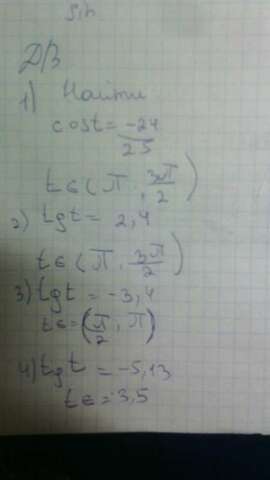 sin
Д/З
1) Найти
cost = -24/25
t ∈ (π, 3π/2)
2) tgt = 2,4
t ∈ (π, 3π/2)
3) tgt = -3,4
t ∈ = (π/2, π)
4) tgt = -5,13
t ∈ = 3,5